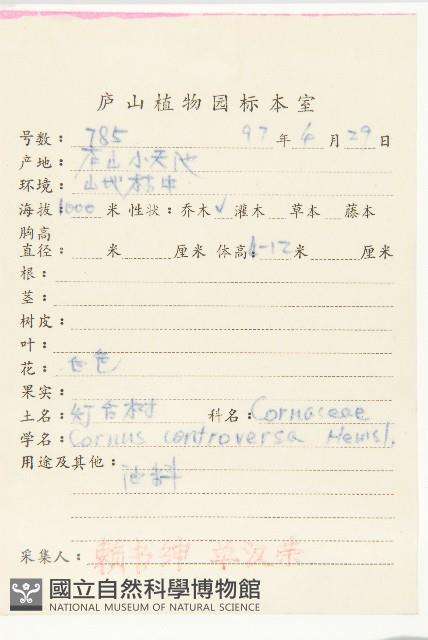 庐山植物园标本室
号数: 785 97年4月29日
产地: 庐山小天池
环境: 山地林中
海拔: 1000 米 性状: 乔木✓ 灌木 草本 藤本
胸高
直径: 米 厘米 体高: 8-12 米 厘米
根:
茎:
树皮:
叶:
花: 白色
果实:
土名: 灯台树 科名: Cornaceae
学名: Cornus controversa Hemsl.
用途及其他:
油料
采集人: 赖书绅 单汉荣
國立自然科學博物館
NATIONAL MUSEUM OF NATURAL SCIENCE